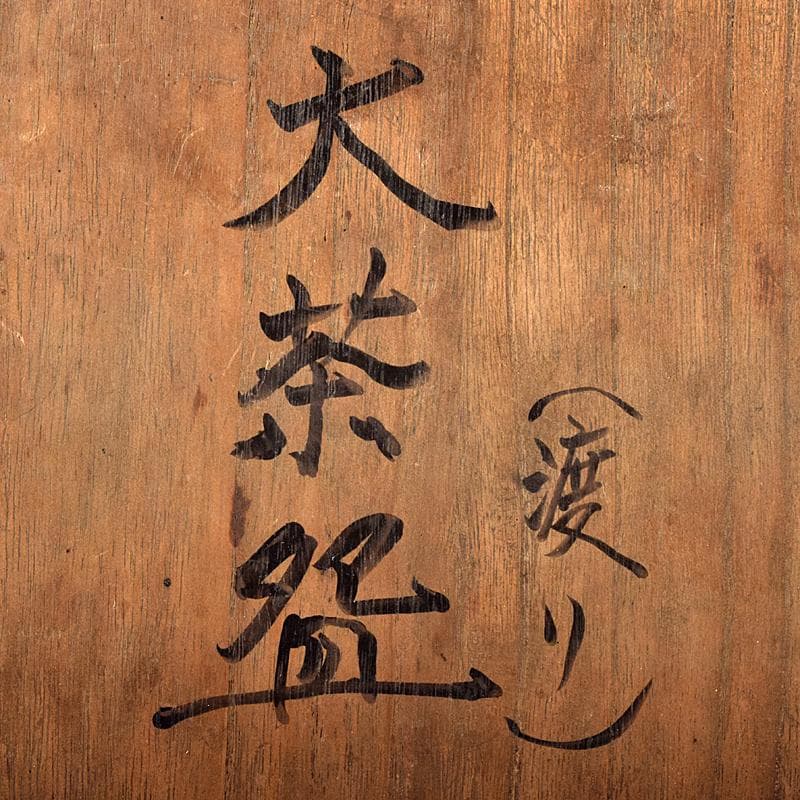 (渡り)
大茶盌